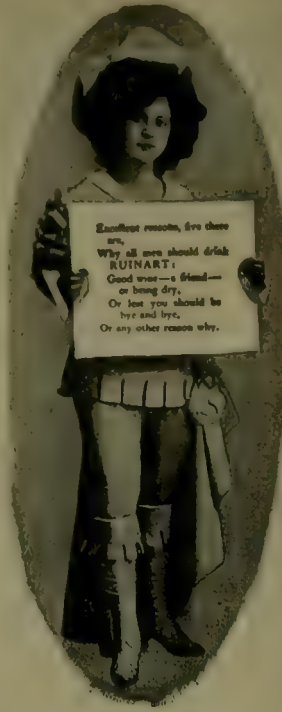 Excellent reasons, five there
are,
Why all men should drink
RUINART:
Good wine—a friend—
or being dry,
Or lest you should be
bye and bye,
Or any other reason why.